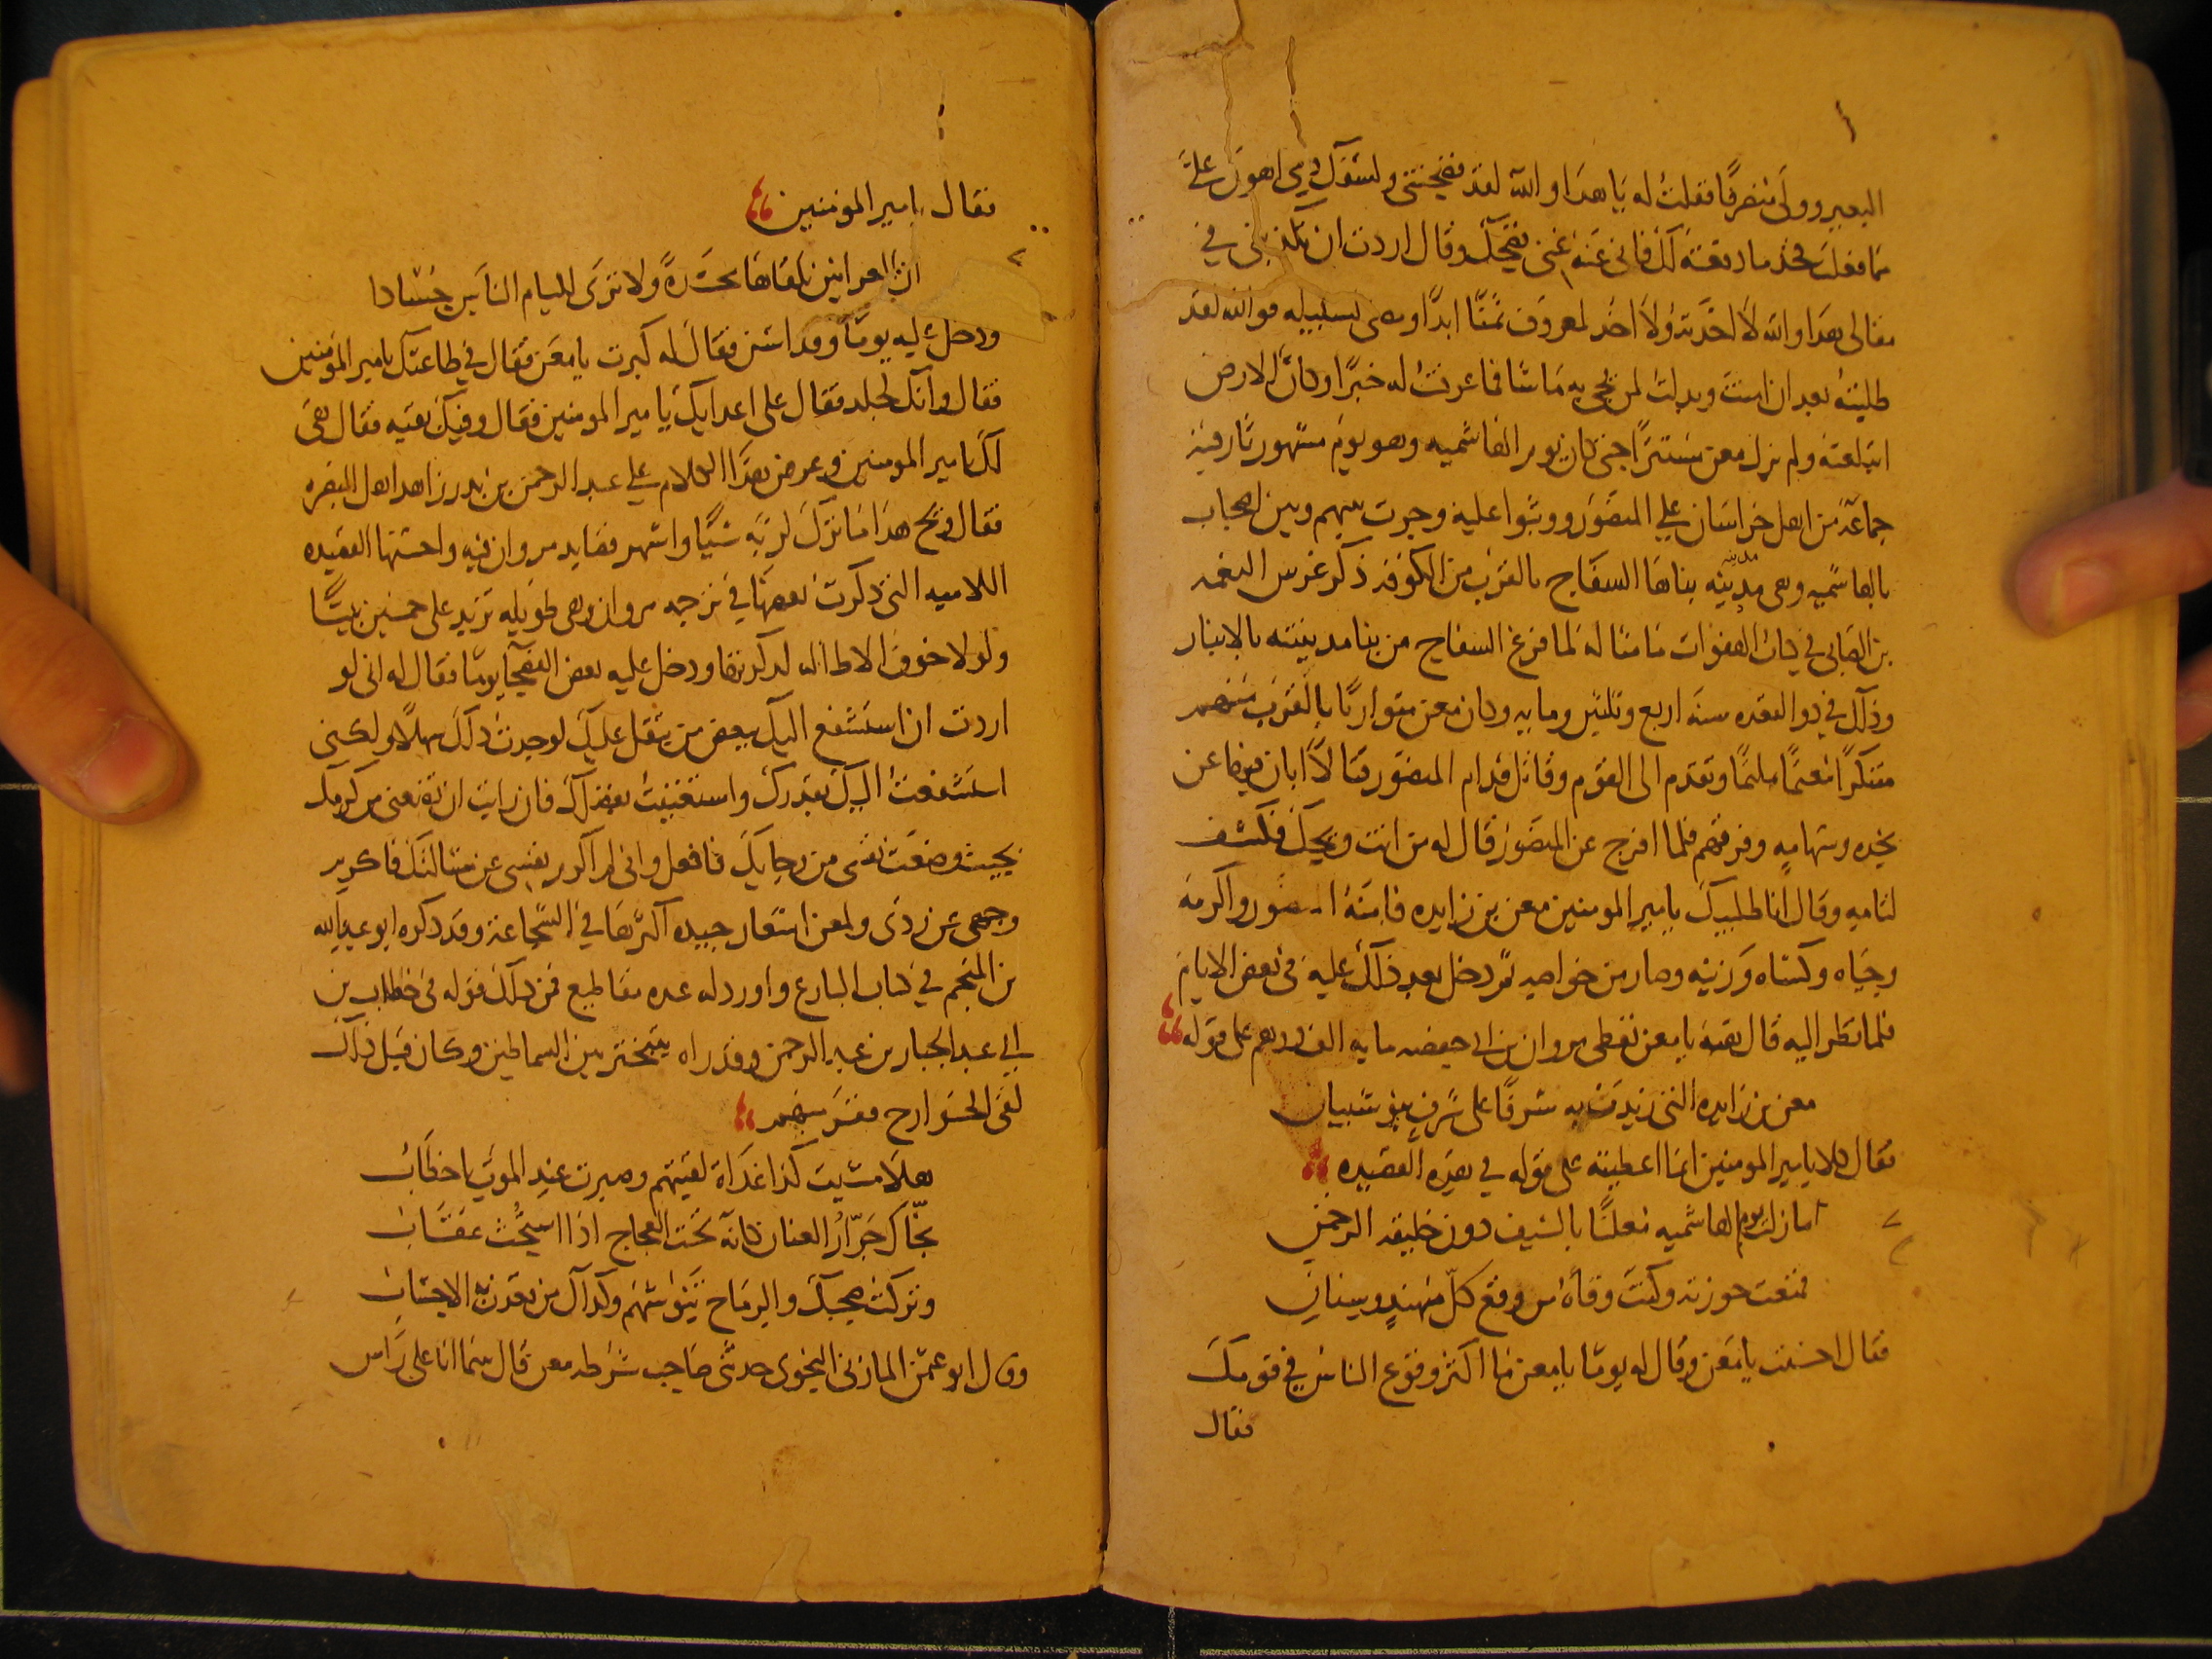 البعير وولى منصرفا فقلت له يا هذا والله لقد فضحتني ولسفك دمي اهون علي
مما فعلت فخذ ما دفعته لك فاني عنه غني فضحك وقال اردت ان تكذبني في
مقالي هذا والله لا اخذته ولا اخذ لمعروف ثمنا ابدا ومضى لسبيله فوالله لقد
طلبته بعد ان امنت وبذلت لمن يجي به ما شا فما عرفت له خبرا وكان الارض
ابتلعته ولم يزل معن مستترا حتى كان يوم الهاشميه وهو يوم مشهور ثار فيه
جماعة من اهل خراسان علي المنصور ووثبوا عليه وجرت بينهم وبين اصحاب
بالهاشميه وهي مدينه بناها السفاح بالقرب من الكوفه ذكر غرس النعمه
مدينه
بن الصابي في كتاب الهفوات ما مثاله لما فرغ السفاح من بنا مدينته بالانبار
وذلك في ذو القعده سنه اربع وثلثين ومايه وكان معن متواريا بالقرب منهم
متنكرا معتما ملثما وتقدم الى القوم وقاتل قدام المنصور قتالا ابان فيه عن
نجده وشهامه وفرقهم فلما افرج عن المنصور قال له من انت ويحك فكشف
لثامه وقال انا طلبتك يامير المومنين معن بن زايده فامنه المنصور واكرمه
وحباه وكساه وزينه وصار من خواصه ثم دخل بعد ذلك عليه في بعض الايام
فلما نظر اليه قال هيه يا معن تعطي مروان بن ابي حفصه مايه الف درهم على قوله
معن بن زايده الذي زيدت به شرفا على شرف بنو شيبان
فقال كلا يامير المومنين انما اعطيته على قوله في هذه القصيده
ما زلت يوم الهاشميه معلنا بالسيف دون خليفه الرحمن
فمنعت حوزته وكنت وقاه من وقع كل مهند وسنان
فقال احسنت يا معن وقال له يوما يا معن ما اكثر وقوع الناس في قومك
فقال
فقال يامير المومنين
ان العرانين تلقاها محسدة ولا ترى لليام الناس حسادا
ودخل عليه يوما وقد اسن فقال له كبرت يا معن فقال في طاعتك يامير المومنين
فقال وانك لجلد فقال على اعدايك يامير المومنين فقال وفيك بقيه فقال هي
لك يامير المومنين وعرض هذا الكلام علي عبد الرحمن بن زيد زاهد اهل البصره
فقال ويح هذا ما ترك لربه شيا واشهر قصايد مروان فيه واحسنها القصيده
اللاميه التي ذكرت بعضها في ترجمه مروان وهي طويله تزيد على خمسين بيتا
ولولا خوف الاطاله لذكرتها ودخل عليه بعض الفصحا يوما فقال له اني لو
اردت ان استشفع اليك ببعض من يثقل عليك لوجدت ذلك سهلا ولكني
استشفعت اليك بقدرك واستغنيت بفضلك فان رايت ان تضعني من كرمك
بحيث وضعت نفسي من رجايك فافعل واني لم اكرم نفسي عن مسالتك فاكرم
وجهي عن ردي ولمعن اشعار جيده اكثرها في الشجاعة وقد ذكره ابو عبد الله
بن المنجم في كتاب البارع واورد له عده مقاطيع فمن ذلك قوله في خطاب بن
اخي عبد الجبار بن عبد الرحمن وقد راه يتبختر بين السماطين وكان قبل ذلك
لقى الخوارج ففر منهم
هلا مشيت كذا غداة لقيتهم وصبرت عند الموت يا خطاب
نجاك خوار العنان كانه تحت العجاج اذا استحث عقاب
وتركت صحبك والرماح تنوشهم وكذاك من قعدت به الاحساب
وقال ابو عثمن المازني النحوي حدثني صاحب شرطه معن قال بينما انا على راس